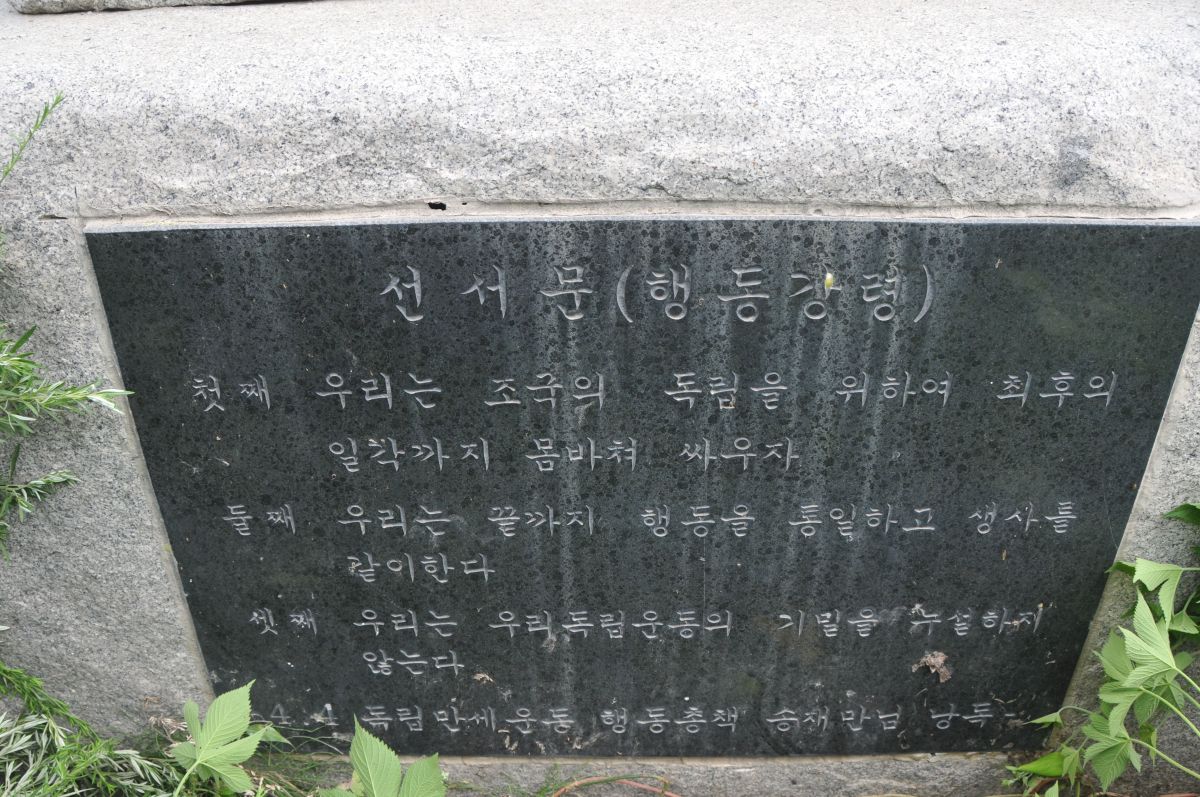 선서문(행동강령)
첫째 우리는 조국의 독립을 위하여 최후의
일각까지 몸바쳐 싸우자
둘째 우리는 끝까지 행동을 통일하고 생사를
같이한다
셋째 우리는 우리독립운동의 기밀을 누설하지
않는다
4.4 독립만세운동 행동총책 송재만님 낭독